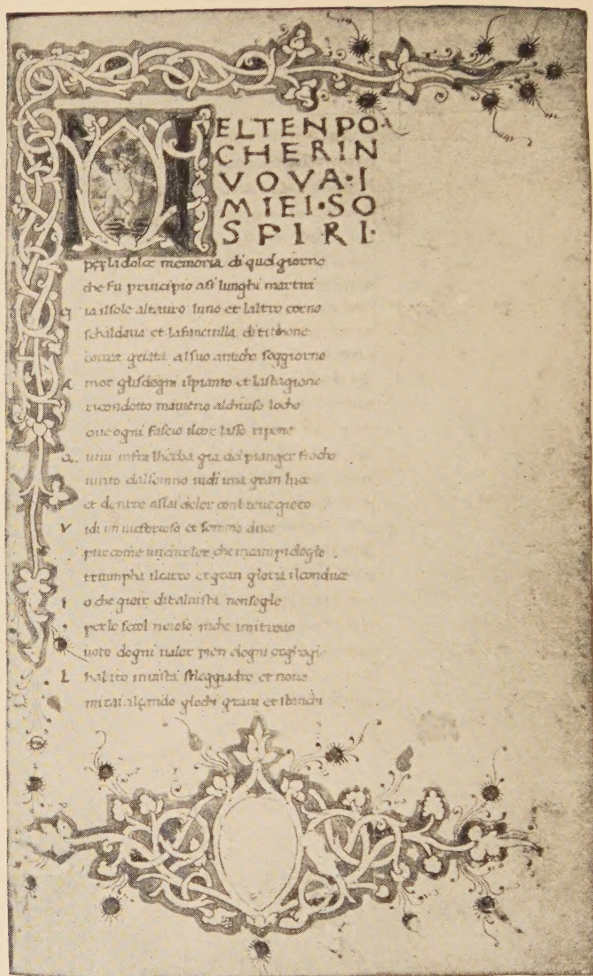 N ELTENPO
CHERIN
VOVA·I
MIEI·SO
SPIRI·
per la dolce memoria di quel giorno
che fu principio asi lunghi martiri
g ia ilsole altauro luno et laltro corno
schaldaua et lafanciulla ditithone
correa gelata alsuo anticho soggiorno
A mor glisdegni ilpianto et lastagione
ricondotto maueno alchiuso locho
oue ogni fascio ilcor lasso ripone
iui infra lherba gia del pianger fiocho
uinto dalsonno uidi una gran luce
et dentro assai dolor con breue gioco
V idi un uictorioso et sommo duce
pur come un che incampidoglo
triumpha ilcarro et gran gloria ilconduce
I o che gioir ditaluista nonsoglo
per lo secol noioso inche mitrouo
uoto dogni ualor pien dogni orghoglo
L habito inuista sileggiadro et nouo
mirai alçando glochi graui et stanchi